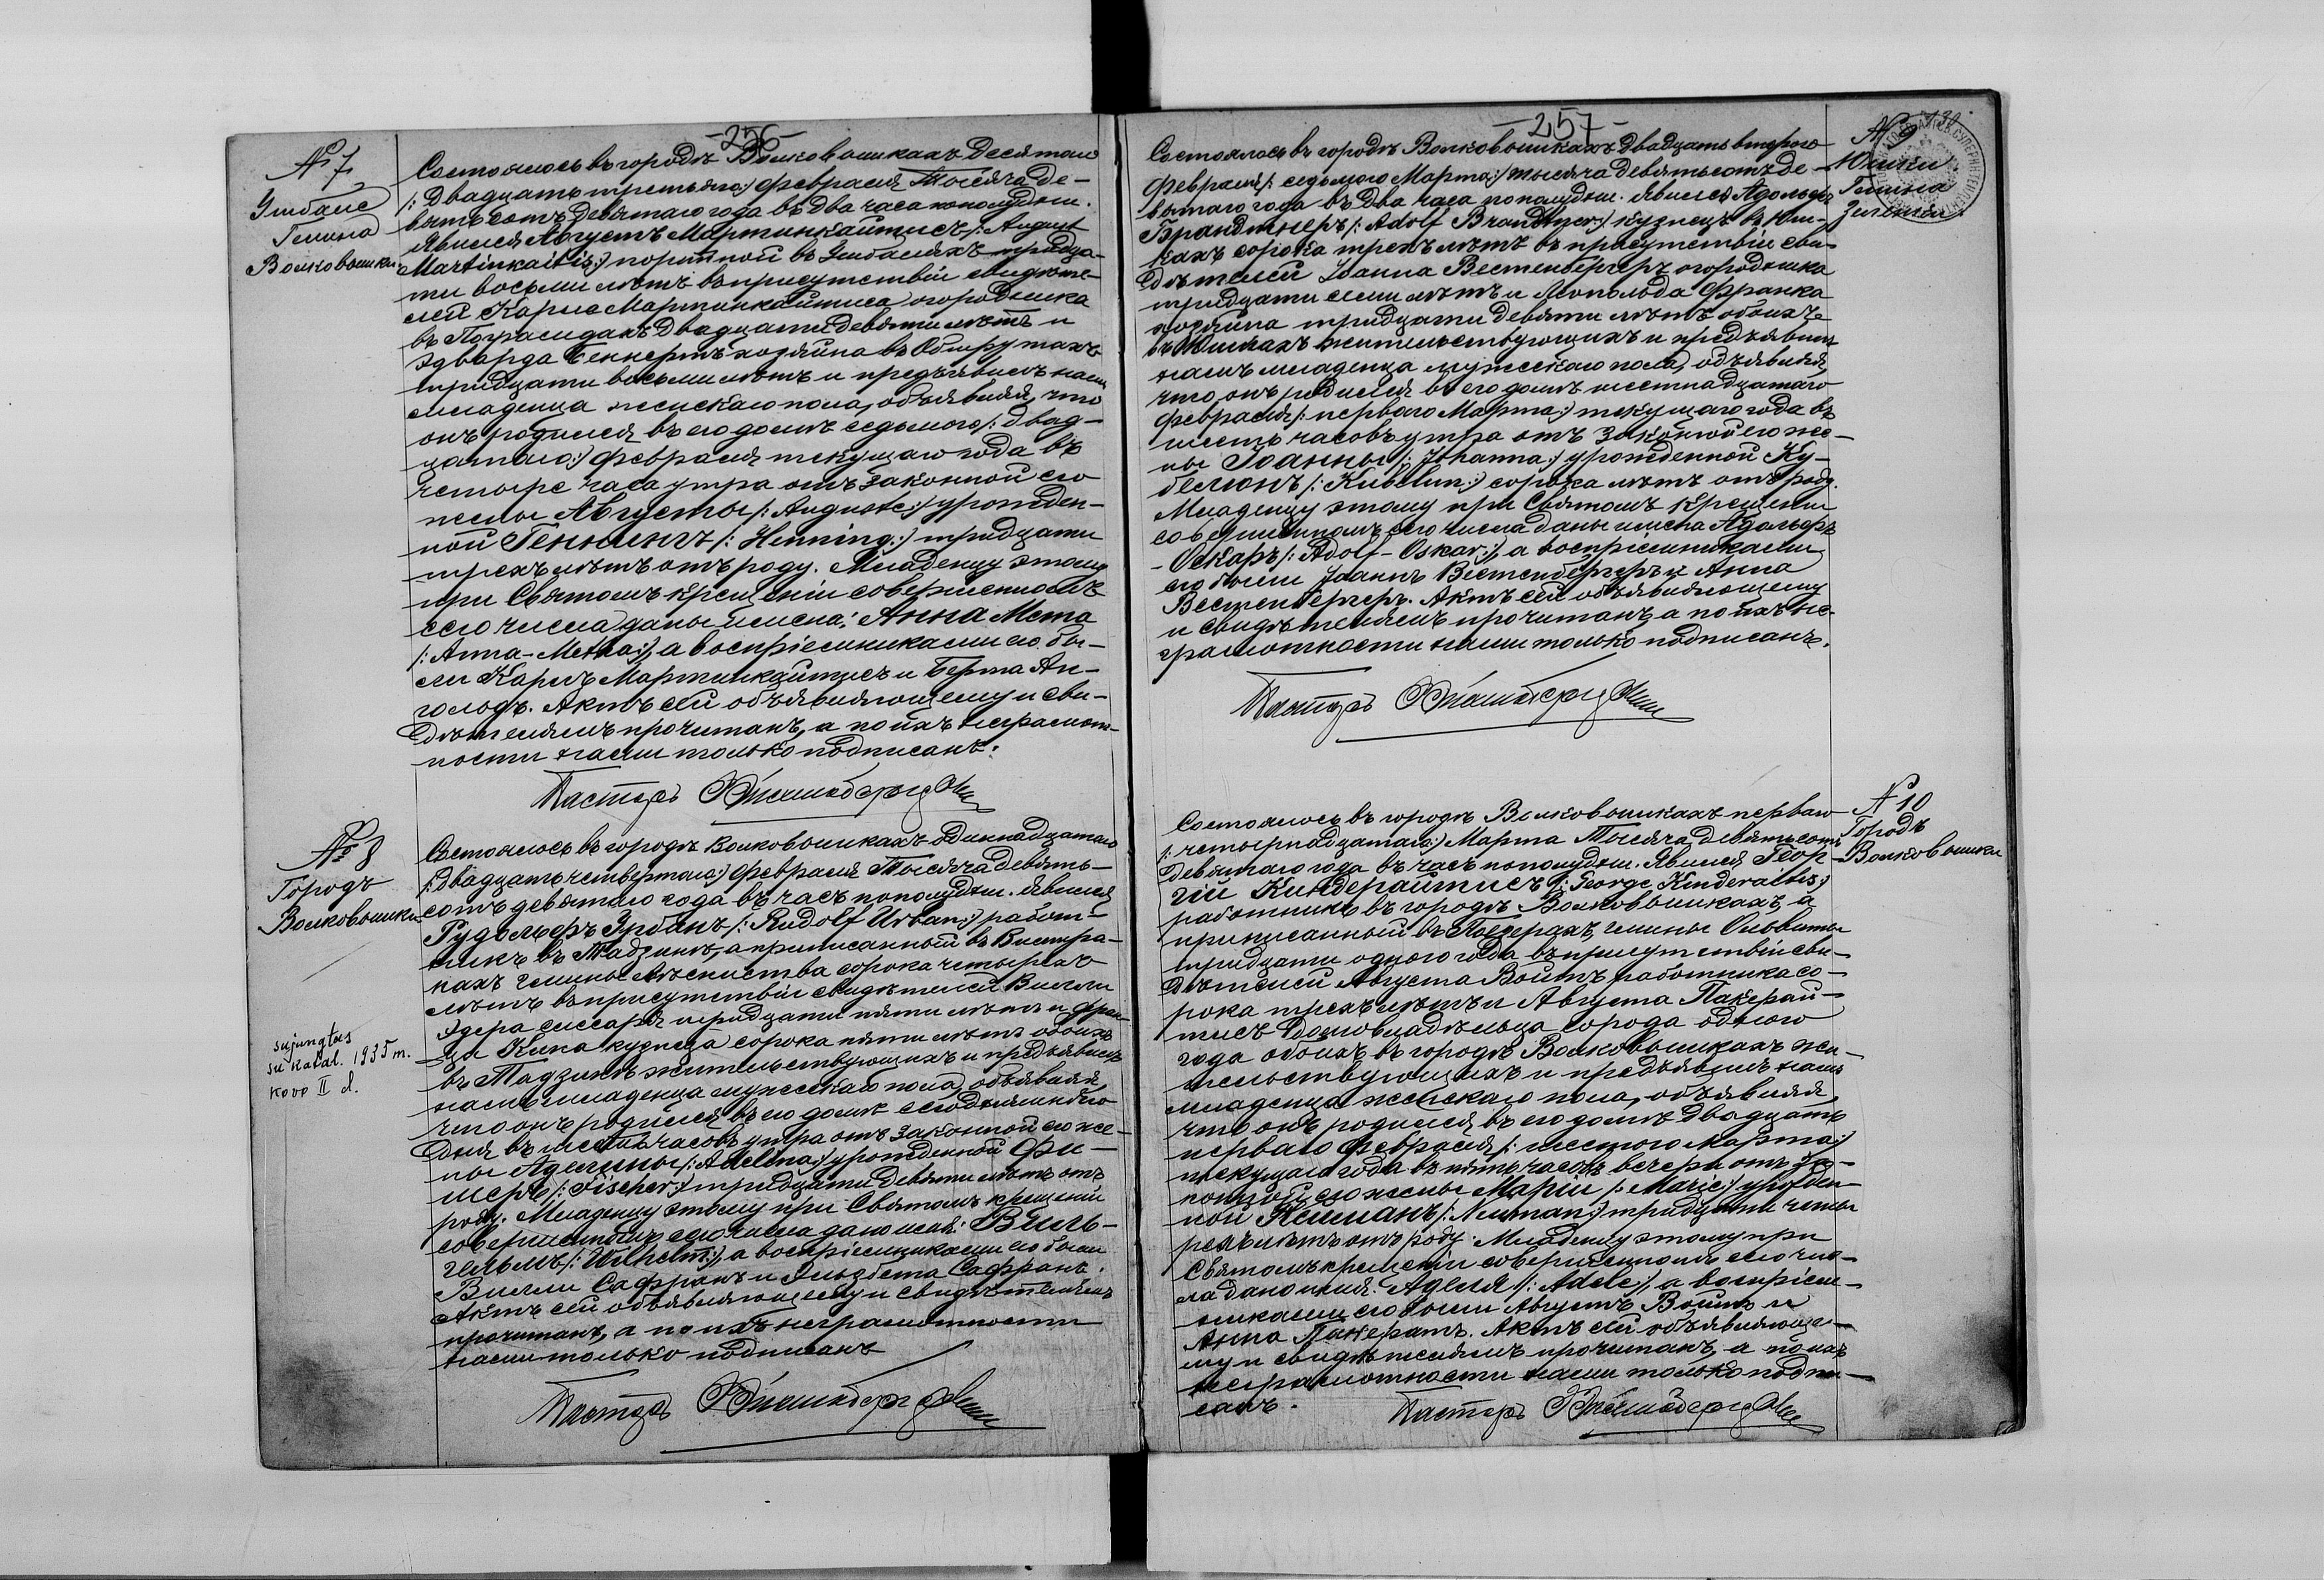 -256-
№ 7
Гмина
Волковышки
Состоялось въ городѣ Волковышкахъ десятаго
/: двадцать третьяго :/ февраля тысяча де-
вятьсотъ девятаго года въ два часа пополудни.
Явился Августъ Мартинкайтисъ /: August
Martinkaitis :/ портной въ тридца-
ти восьми лѣтъ въ присутствіи свидѣте-
лей Карла Мартинкайтиса огородника
въ двадцати девяти лѣтъ и
Эдварда Беннертъ хозяина въ Обшрутахъ
тридцати восьми лѣтъ и предъявилъ намъ
младенца женскаго пола, объявляя, что
онъ родился въ его домѣ седьмого /: двад-
цатаго :/ февраля текущаго года въ
четыре часа утра отъ законной его
жены Августы /: Auguste :/ урожден-
ной Геннингъ /: Henning :/ тридцати
трехъ лѣтъ отъ роду. Младенцу этому
при Святомъ крещеніи совершенномъ
сего числа даны имена: Анна Мета
/: Anna-Metha :/, а воспріемниками его бы-
ли Карлъ Мартинкайтисъ и Берта Ан-
голодъ. Актъ сей объявляющему и сви-
дѣтелямъ прочитанъ, а по ихъ неграмот-
ности нами только подписанъ.
Пасторъ
№ 8
Городъ
Волковышки
sujungtas
su katal. 1935 m.
kovo II d.
Состоялось въ городѣ Волковышкахъ одиннадцатаго
/: двадцать четвертаго :/ февраля тысяча девять-
сотъ девятаго года въ часъ пополудни. Явился
Рудольфъ Урбанъ /: Rudolf Urban :/ работ-
никъ въ Мадзинѣ, а приписанный въ Виштра-
кахъ гмины сорока четырехъ
лѣтъ въ присутствіи свидѣтелей Вилли
Эдера слесаря тридцати пяти лѣтъ и Фран-
ца Кипа кузнеца сорока пяти лѣтъ обоихъ
въ Мадзинѣ жительствующихъ и предъявилъ
намъ младенца мужескаго пола, объявляя,
что онъ родился въ его домѣ сегодняшняго
дня въ шесть часовъ утра отъ законной его же-
ны Аделины /: Adelina :/ урожденной Фи-
шеръ /: Fischer :/ тридцати девяти лѣтъ отъ
роду. Младенцу этому при Святомъ крещеніи
совершенномъ сего числа дано имя: Виль-
гельмъ /: Wilhelm :/, а воспріемниками его были
Вилли Сафранъ и Эльзбета Сафранъ.
Актъ сей объявляющему и свидѣтелямъ
прочитанъ, а по ихъ неграмотности
нами только подписанъ
Пасторъ
-257-
№ 9
Юшки
Гмина
Состоялось въ городѣ Волковышкахъ двадцать второго
февраля /: седьмого Марта :/ тысяча девятьсотъ де-
вятаго года въ два часа пополудни. Явился Адольфъ
Брандтнеръ /: Adolf Brandtner :/ кузнецъ въ Юш-
кахъ сорока трехъ лѣтъ въ присутствіи сви-
дѣтелей Іоанна Вестенбергеръ огородника
тридцати семи лѣтъ и Леопольда Франка
хозяина тридцати девяти лѣтъ обоихъ
въ Юшкахъ жительствующихъ и предъявилъ
намъ младенца мужескаго пола, объявляя,
что онъ родился въ его домѣ шестнадцатаго
февраля /: перваго Марта :/ текущаго года въ
шесть часовъ утра отъ законной его же-
ны Іоанны /: Johanna :/ урожденной Ку-
белюнъ /: Kubelun :/ сорока лѣтъ отъ роду.
Младенцу этому при Святомъ Крещеніи
совершенномъ сего числа даны имена Адольфъ
-Оскаръ /: Adolf-Oskar :/, а воспріемниками
его были Іоаннъ Вестенбергеръ и Анна
Вестенбергеръ. Актъ сей объявляющему
и свидѣтелямъ прочитанъ, а по ихъ не-
грамотности нами только подписанъ.
Пасторъ
№ 10
Городъ
Волковышки
Состоялось въ городѣ Волковышкахъ перваго
/: четырнадцатаго :/ Марта тысяча девятьсотъ
девятаго года въ часъ пополудни. Явился Геор-
гій Киндерайтисъ /: George Kinderaitis :/
работникъ въ городѣ Волковышкахъ, а
приписанный въ гмины
тридцати одного года въ присутствіи сви-
дѣтелей Августа Войтъ работника со-
рока трехъ лѣтъ и Августа Пакерай-
тисъ домовладѣльца сорока одного
года обоихъ въ городѣ Волковышкахъ жи-
тельствующихъ и предъявилъ намъ
младенца женскаго пола, объявляя,
что онъ родился въ его домѣ двадцать
перваго февраля /: шестого Марта :/
текущаго года въ пять часовъ вечера отъ за-
конной его жены Маріи /: Marie :/ урожден-
ной Нейманъ /: Neuman :/ тридцати четы-
рехъ лѣтъ отъ роду. Младенцу этому при
Святомъ крещеніи совершенномъ сего чис-
ла дано имя: Аделя /: Adele :/, а воспріем-
никами его были Августъ Войтъ и
Анна Пакератъ. Актъ сей объявляюще-
му и свидѣтелямъ прочитанъ, а по ихъ
неграмотности нами только подпи-
санъ.
Пасторъ